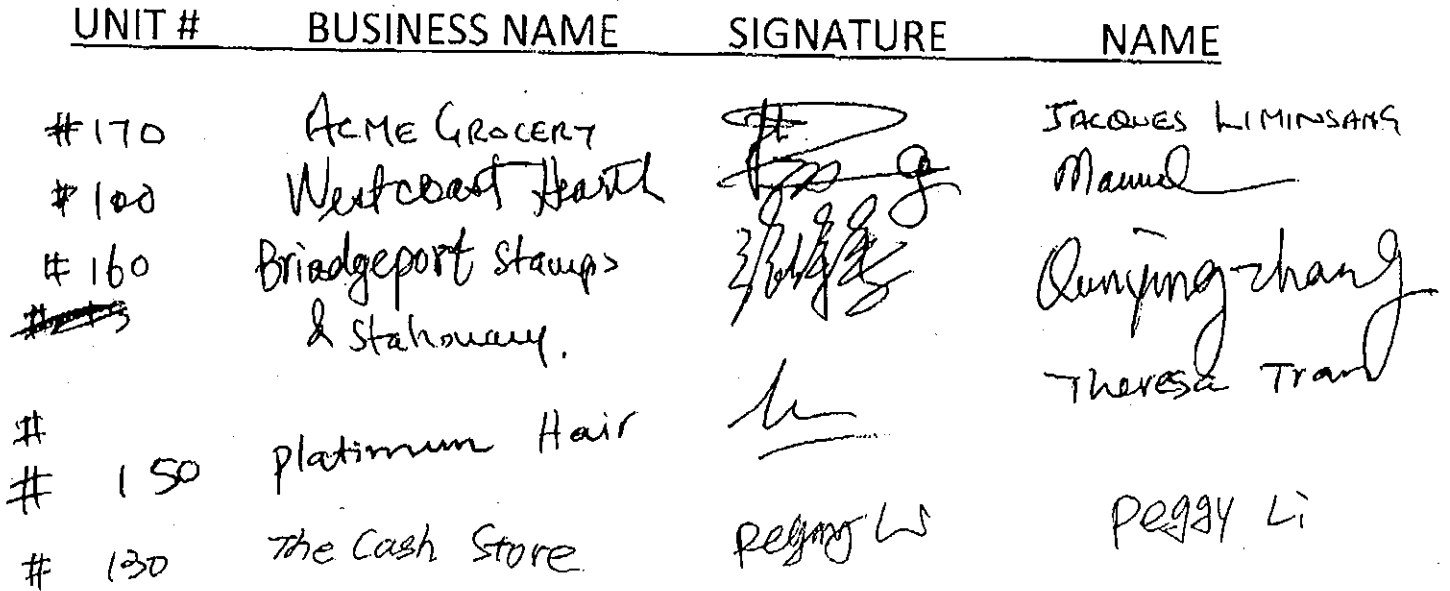 UNIT # BUSINESS NAME SIGNATURE NAME
#170 ACME GROCERY JACQUES LIMINSANG
#100 Westcoast Hearth Manuel
#160 Briadgeport Stamps Qunying zhang
& Stationary.
Theresa Tran
#
# 150 platinum Hair
# 130 The Cash Store Peggy Li Peggy Li